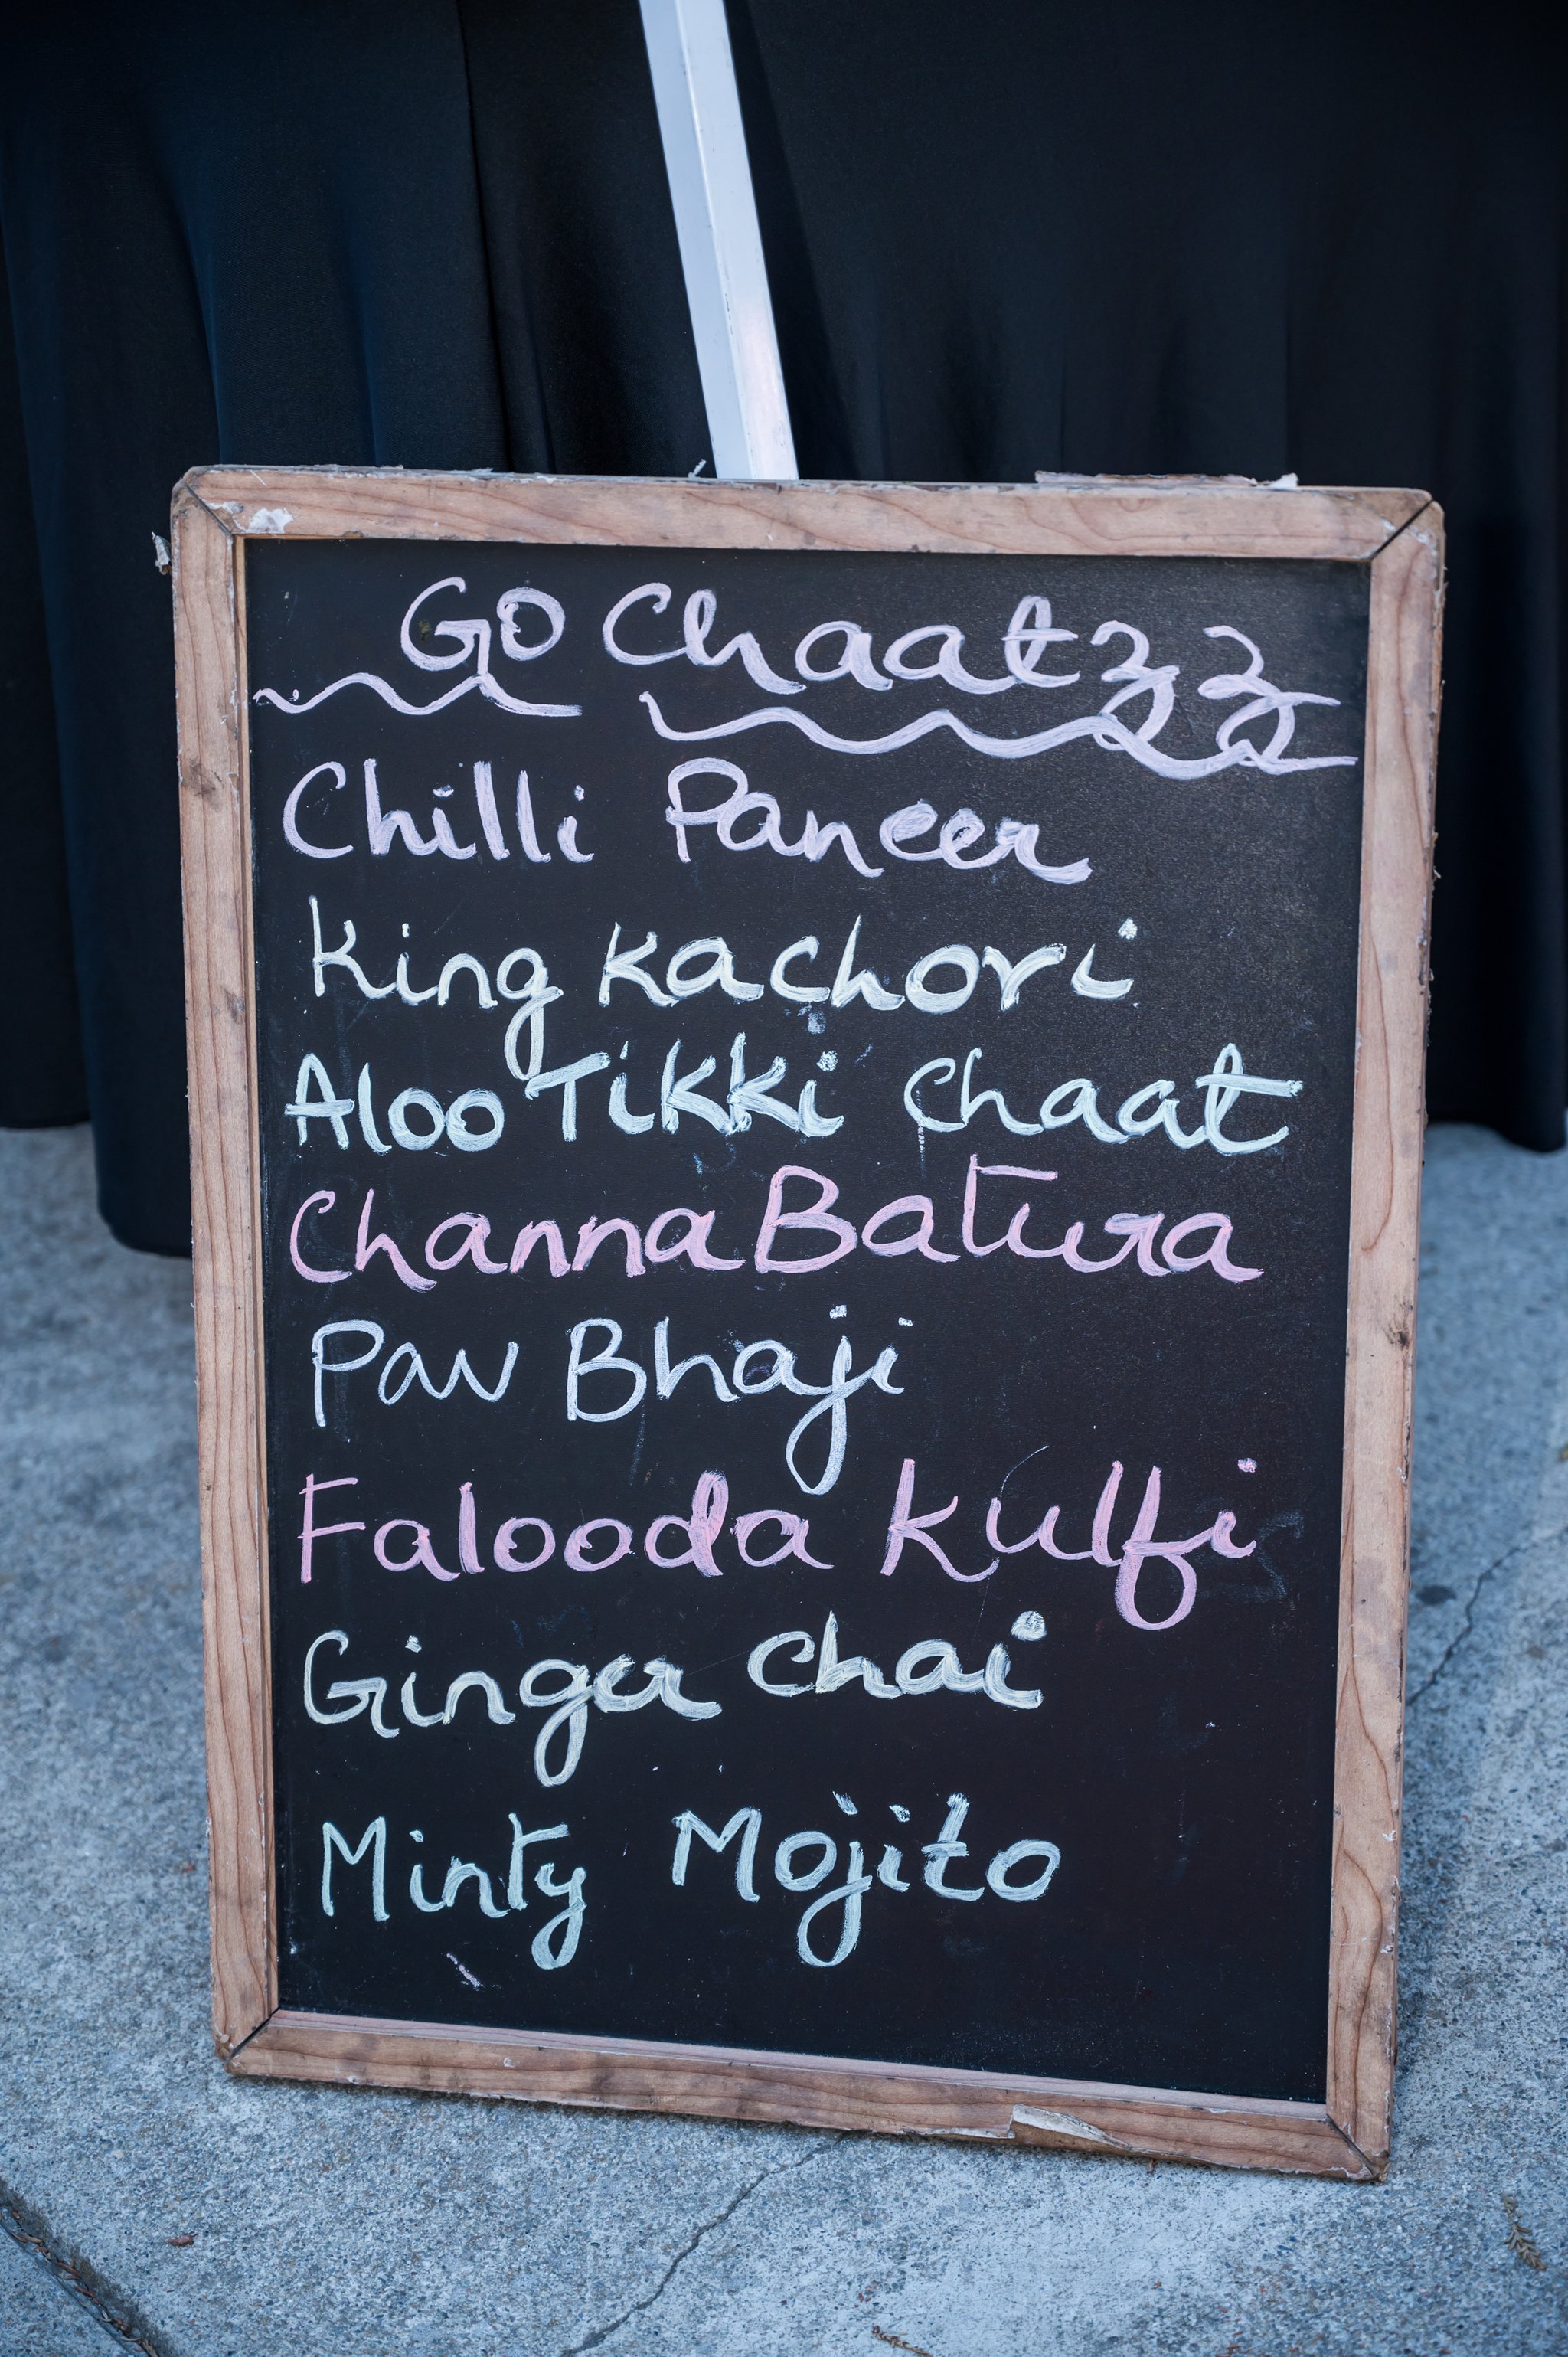 Go Chaatzz
Chilli Paneer
King Kachori
Aloo Tikki Chaat
Channa Batura
Pav Bhaji
Falooda Kulfi
Ginger Chai
Minty Mojito